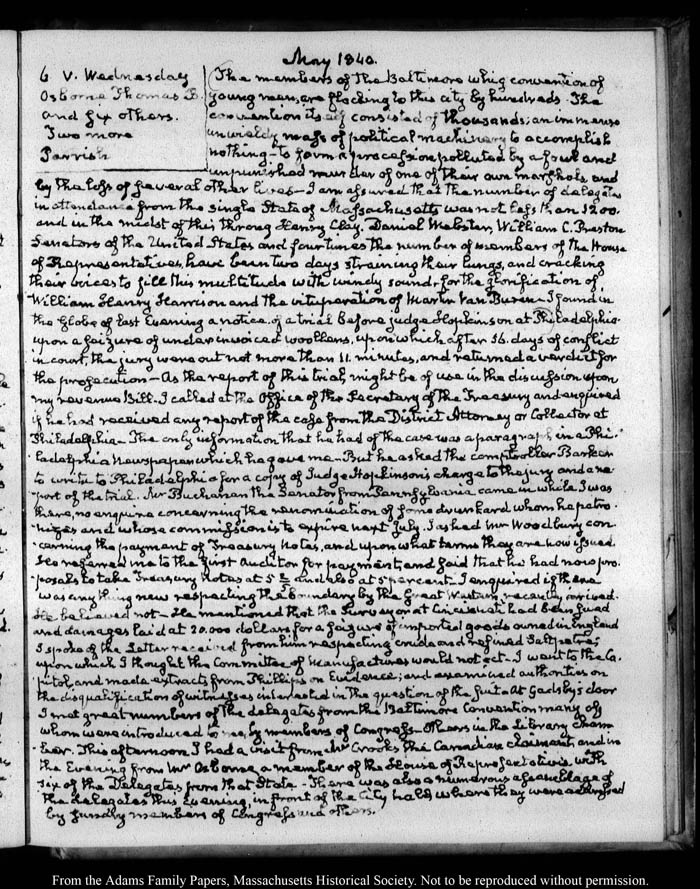 May 1840.
6 V. Wednesday
Osborne Thomas B.
and six others.
Two more
Parrish
The members of the Baltimore whig convention of
young men, are flocking to this city by hundreds. The
convention itself consisted of thousands; an immense
unwieldy mass of political machinery to accomplish
nothing — to form a procession polluted by a foul and
unpunished murder of one of their own marshals and
by the loss of several other lives — I am assured that the number of delegates
in attendance from the single State of Massachusetts was not less than 1200.
and in the midst of this throng Henry Clay, Daniel Webster, William C. Preston
Senators of the United States and four times the number of members of the House
of Representatives, have been two days straining their lungs, and cracking
their voices to fill this multitude with windy sound, for the glorification of
William Henry Harrison and the vituperation of Martin Van Buren — I found in
the Globe of last Evening a notice of a trial before Judge Hopkinson at Philadelphia
upon a seizure of under invoiced woollens, upon which after 16. days of conflict
in court, the jury were out not more than 11. minutes, and returned a verdict for
the prosecution — As the report of this trial, might be of use in the discussion upon
my revenue Bill. I called at the Office of the Secretary of the Treasury and enquired
if he had received any report of the case from the District Attorney or Collector at
Philadelphia — The only information that he had of the case was a paragraph in a Phi-
ladelphia Newspaper which he gave me — But he asked the comptroller Barker
to write to Philadelphia for a copy of Judge Hopkinson's charge to the jury and a re-
port of the trial. Mr Buchanan the Senator from Pennsylvania came in while I was
there, to enquire concerning the renomination of some drunkard whom he patro-
nizes and whose commission is to expire next July. I asked Mr Woodbury con-
cerning the payment of Treasury Notes, and upon what terms they are now issued.
He referred me to the First Auditor for payment, and said that he had now pro-
posals to take Treasury Notes at 5 and also at 5 percent. I enquired if there
was any thing new respecting the boundary by the Great Western, recently arrived.
He believed not — He mentioned that the Surveyor at Cincinnati had been sued
and damages laid at 20.000 dollars for a seizure of imported goods owned in England
I spoke of the Letter received from him respecting crude and refined Saltpetre;
upon which I thought the Committee of Manufactures would not act — I went to the Ca-
pitol and made extracts from Phillips on Evidence; and examined authorities on
the disqualification of witnesses interested in the question of the suit. At Gadsby's door
I met great numbers of the delegates from the Baltimore Convention many of
whom were introduced to me, by members of Congress — Others in the Library Cham-
ber. This afternoon I had a visit from Mr Crooks the Canadian claimant, and in
the Evening from Mr Osborne a member of the House of Representatives with
six of the Delegates from that State — There was also a numerous assemblage of
the delegates this Evening, in front of the City hall, where they were addressed
by sundry members of Congress and others.
From the Adams Family Papers, Massachusetts Historical Society. Not to be reproduced without permission.